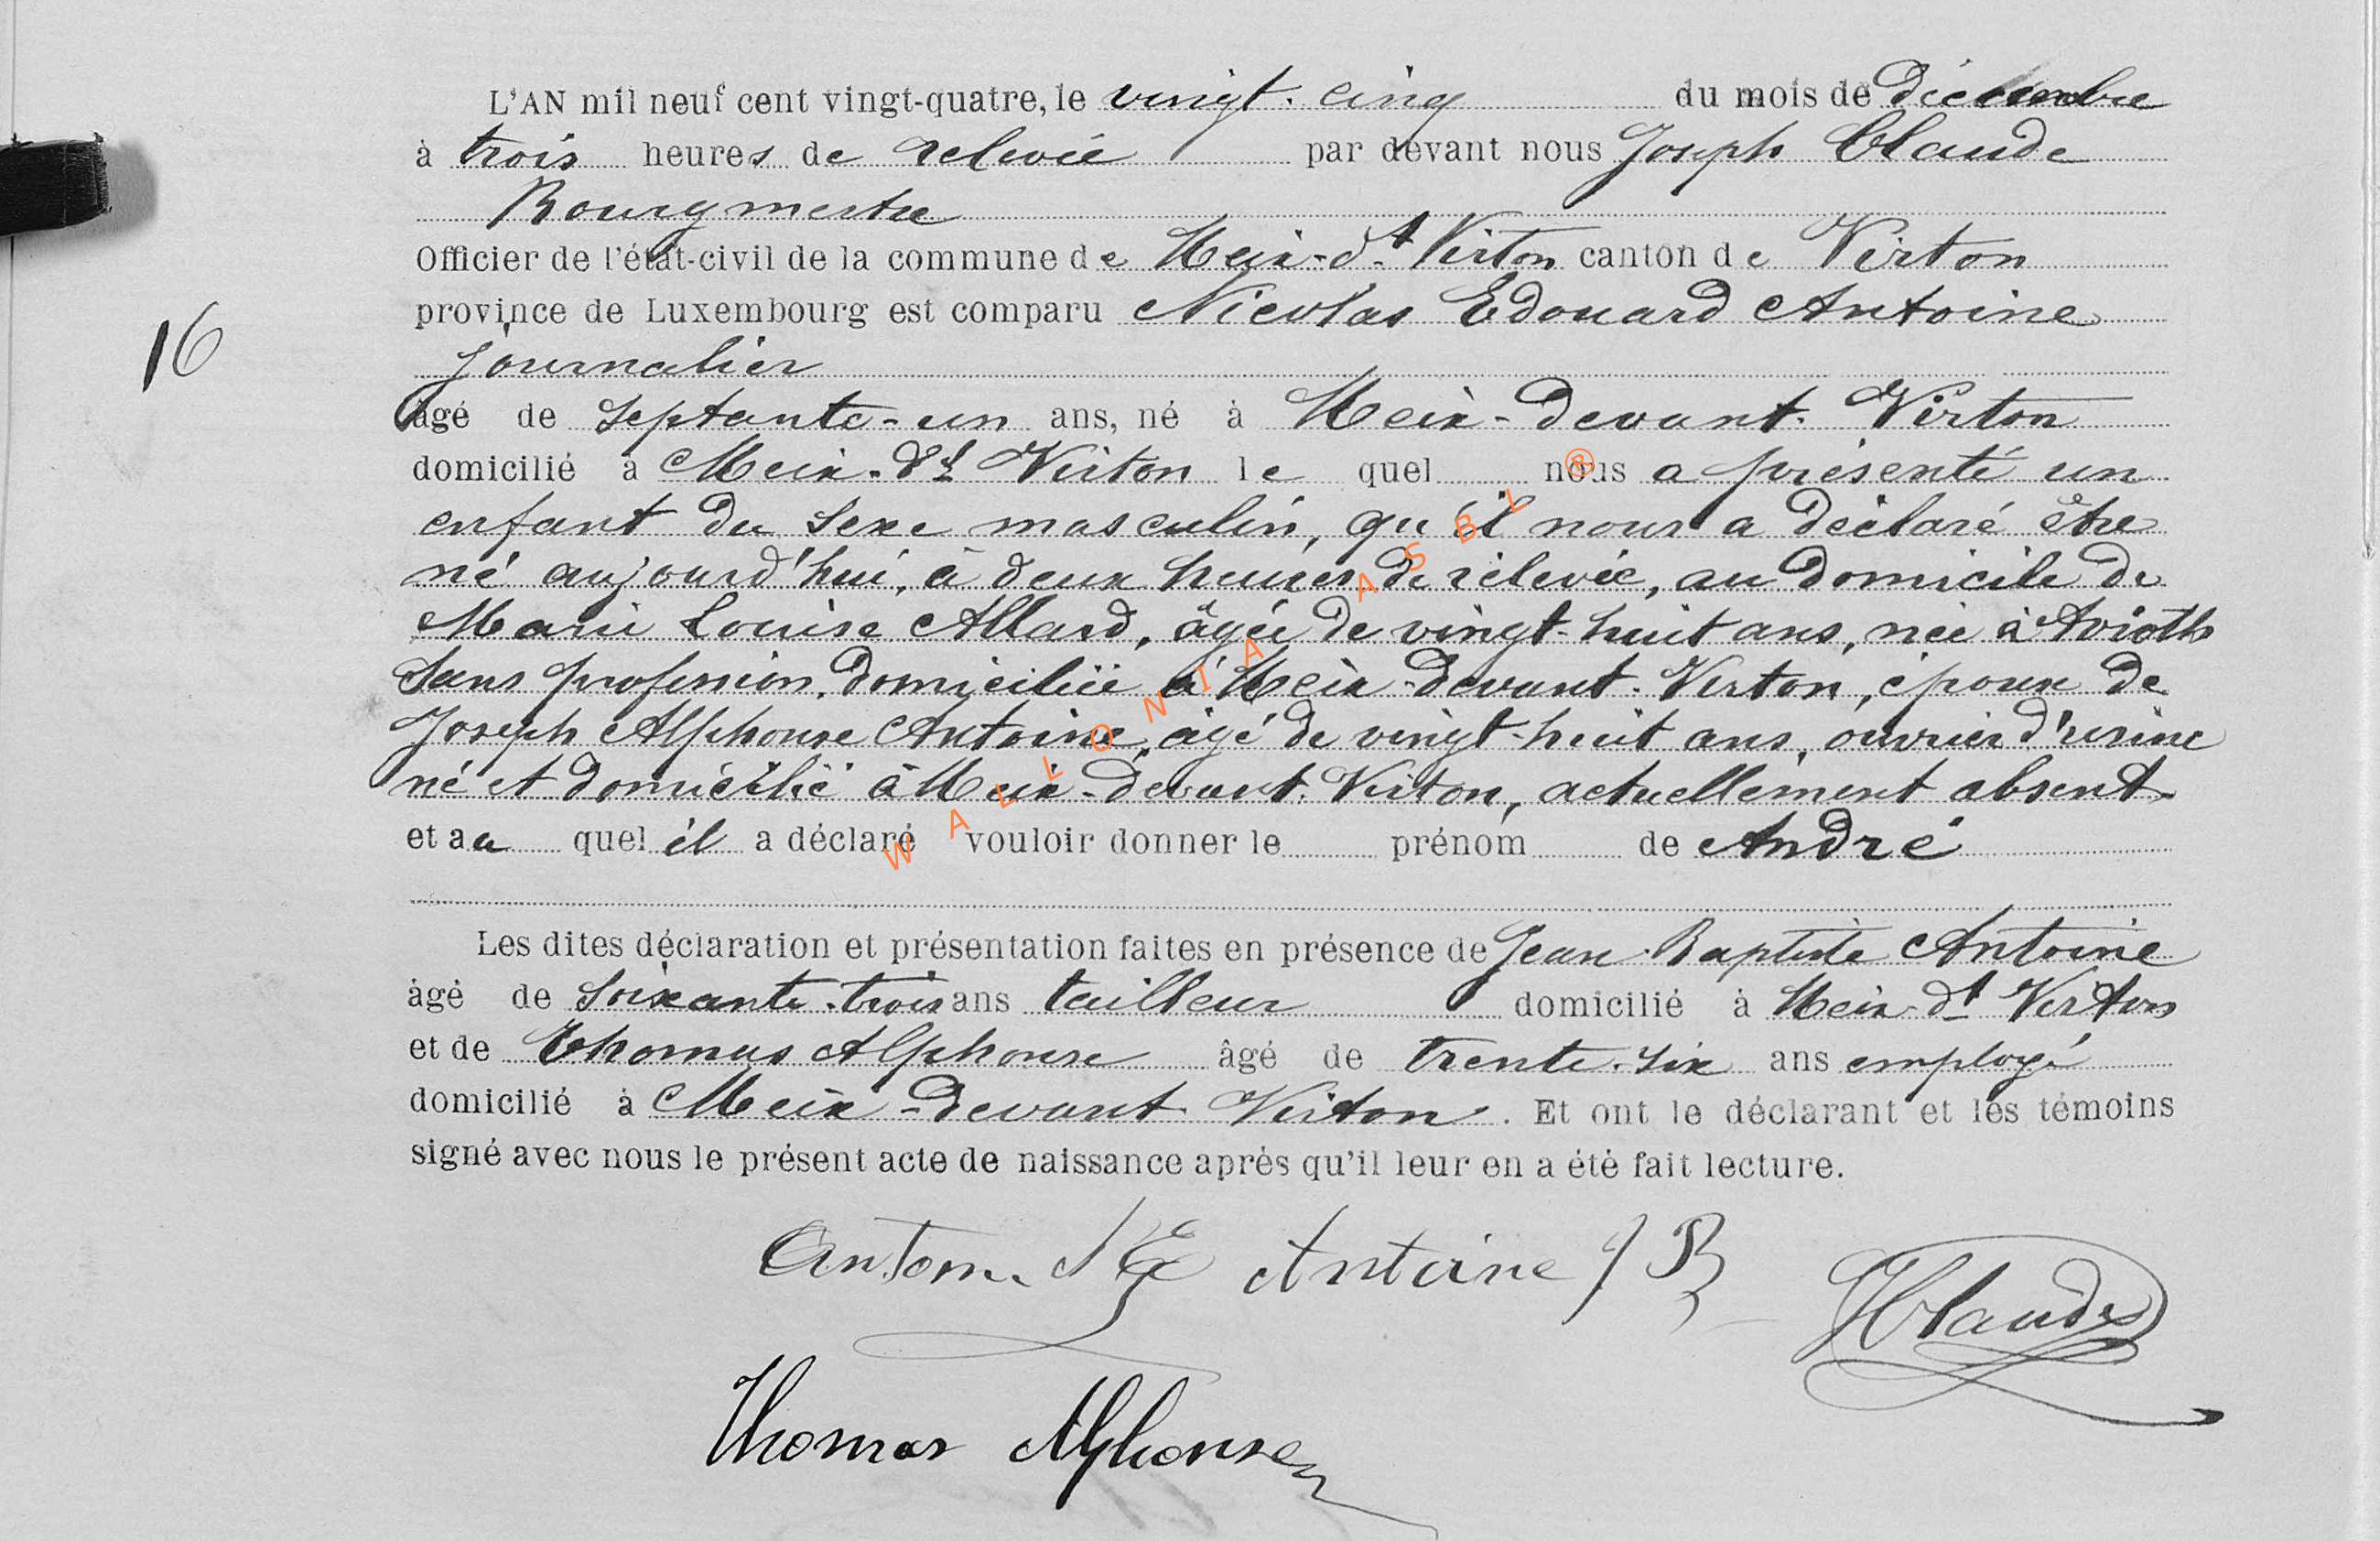 L'AN mil neuf cent vingt-quatre, le vingt-cinq du mois de décembre
à trois heures de relevée par devant nous Joseph Claude
Bourgmestre
Officier de l'état-civil de la commune de Meix-dt Virton canton de Virton
province de Luxembourg est comparu Nicolas Edouard Antoine
16
journalier
âgé de septante-un ans, né à Meix-devant-Virton
domicilié à Meix-dt Virton le quel nous a présenté un
enfant du sexe masculin, qu'il nous a déclaré être
né aujourd'hui, à deux heures de relevée, au domicile de
Marie Louise Allard, âgée de vingt-huit ans, née à Avioth
sans profession, domiciliée à Meix-devant-Virton, épouse de
Joseph Alphonse Antoine, âgé de vingt-huit ans, ouvrier d'usine
né et domicilié à Meix-devant-Virton, actuellement absent
et au quel il a déclaré vouloir donner le prénom de André
WALLONIA ASBL ®
Les dites déclaration et présentation faites en présence de Jean-Baptiste Antoine
âgé de soixante-trois ans tailleur domicilié à Meix-dt Virton
et de Thomas Alphonse âgé de trente-six ans employé
domicilié à Meix-devant-Virton. Et ont le déclarant et les témoins
signé avec nous le présent acte de naissance après qu'il leur en a été fait lecture.
Antoine N E Antoine J B JClaude
Thomas Alphonse